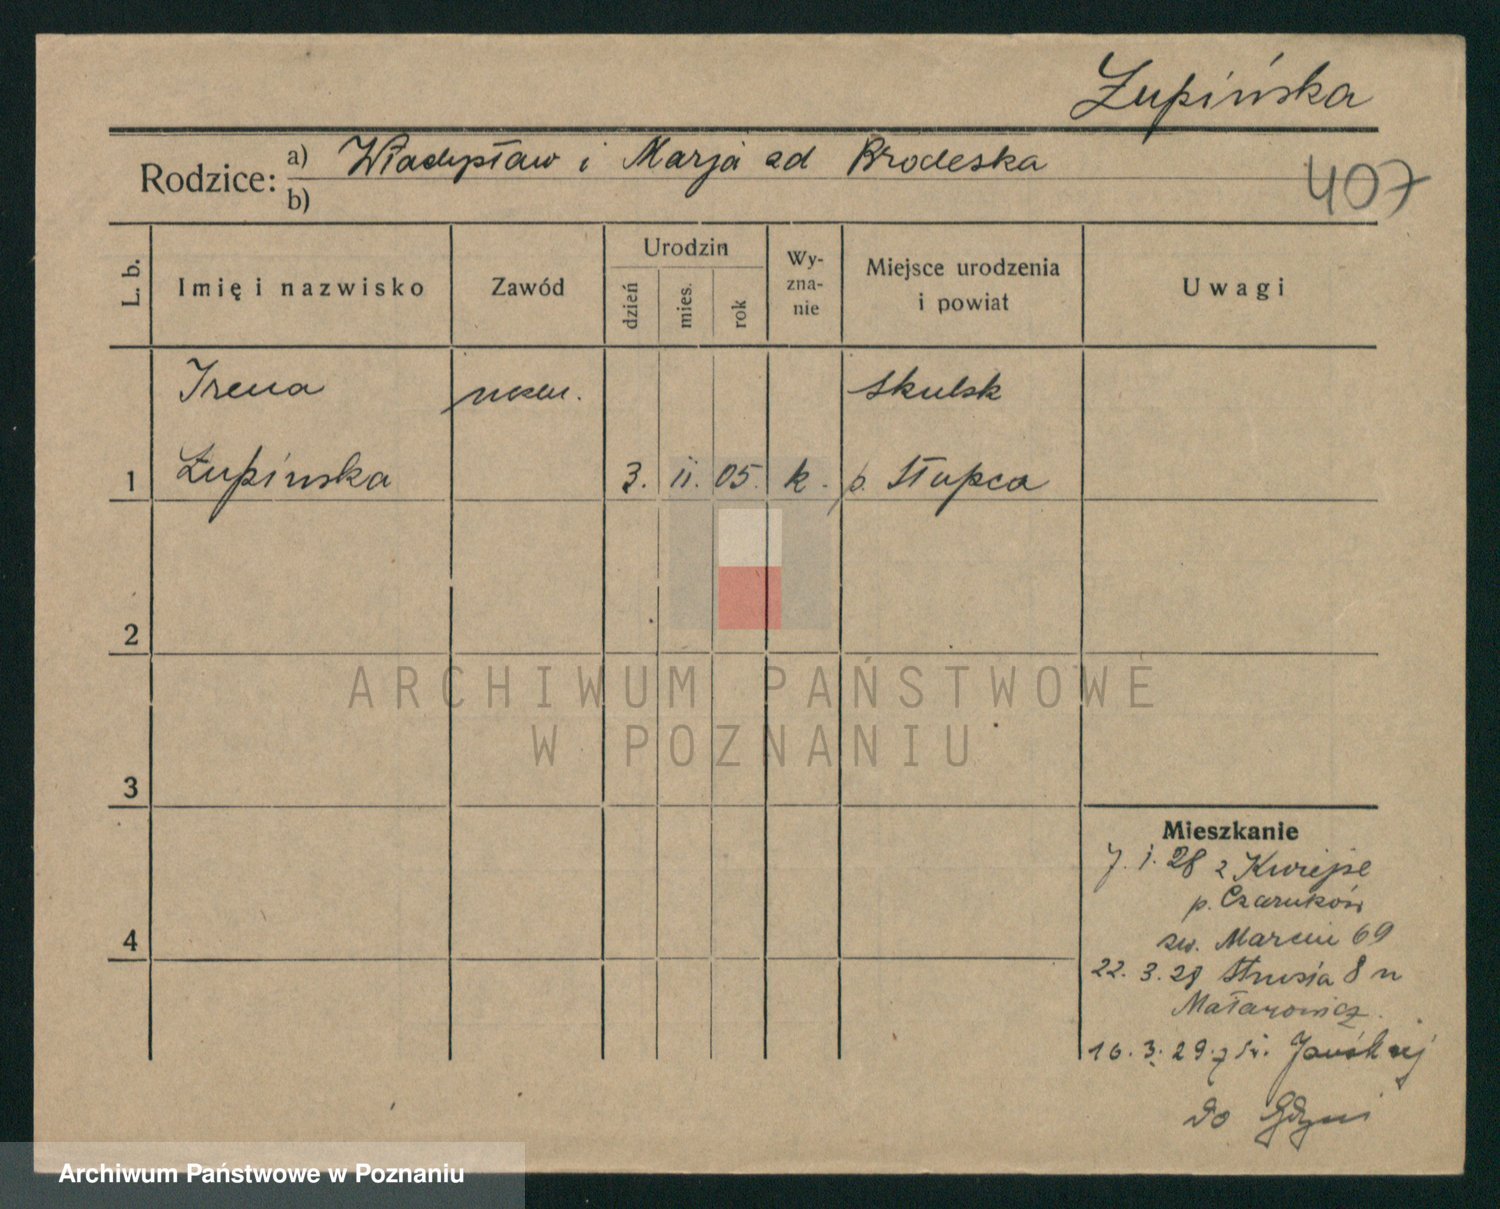 Żupińska
Rodzice: a) Władysław i Marja zd Brodeska
b)
407
L. b. Imię i nazwisko Zawód Urodzin dzień mies. rok Wy-zna-nie Miejsce urodzenia i powiat Uwagi
Irena Skulsk
1 Żupińska 3. ii. 05. k. p. Słupca
2
ARCHIWUM PAŃSTWOWE
W POZNANIU
3
Mieszkanie
7. i. 28 z Kwiejce
p. Czarnków
4
św. Marcin 69
22. 3. 28 Strusia 8 u
16. 3. 29.
do Gdyni
Archiwum Państwowe w Poznaniu